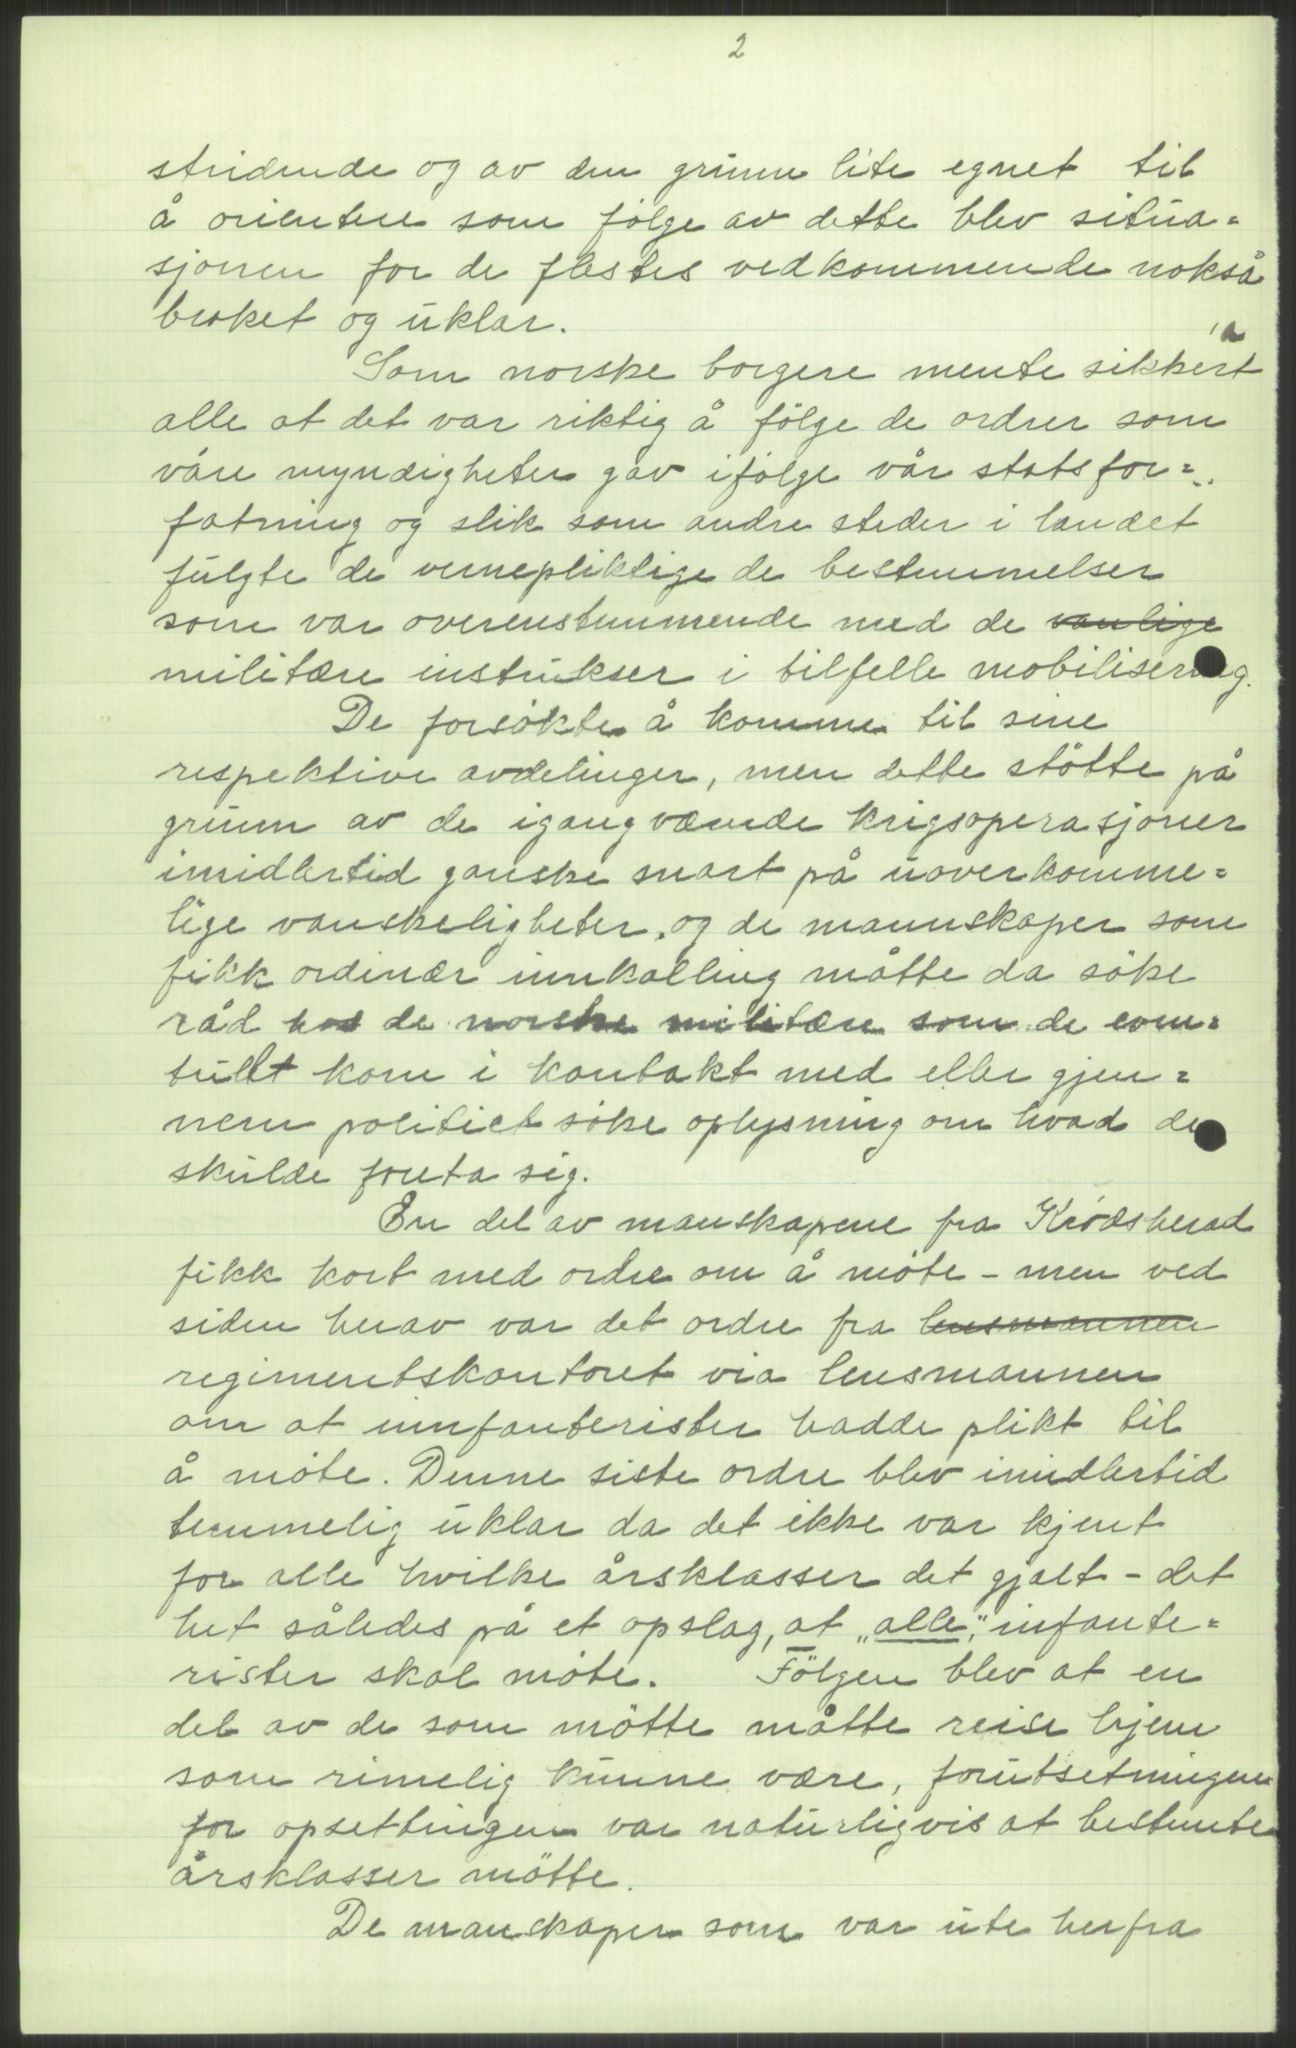 2
stridende og av den grunn lite egnet til
å orientere som følge av dette blev situa=
sjonen for de flestes vedkommende nokså
broket og uklar.
Som norske borgere mente sikkert
alle at det var riktig å fölge de ordrer som
våre myndigheter gav ifølge vår statsfor=
fatning og slik som andre steder i landet
fulgte de vernepliktige de bestemmelser
som var overenstemmende med de vanlige
militære instrukser i tilfelle mobilisering.
De forsökte å komme til sine
respektive avdelinger, men dette stötte på
grunn av de igangværende krigsoperasjoner
imidlertid ganske snart på uoverkomme=
lige vanskeligheter, og de mannskaper som
fikk ordinær innkalling måtte da söke
råd hos de norske militære som de even=
tuelt kom i kontakt med eller gjen=
nem politiet söke oplysning om hvad de
skulde foreta sig.
En del av manskapene fra Krødsherad
fikk kort med ordre om å möte - men ved
siden herav var det ordre fra lensmannen
regimentskontoret via lensmannen
om at innfanterister hadde plikt til
å möte. Denne siste ordre blev imidlertid
temmelig uklar da det ikke var kjent
for alle hvilke årsklasser det gjalt - det
het således på et opslag, at „alle" infante=
rister skal møte. Fölgen blev at en
del av de som mötte måtte reise hjem
som rimelig kunne være, forutsetningen
for opsettingen var naturligvis at bestemte
årsklasser mötte.
De manskaper som var ute herfra